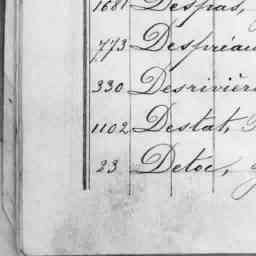 1681 Despas,
773 Despréau
330 Desrivière
1102 Destat,
23 Detoc,